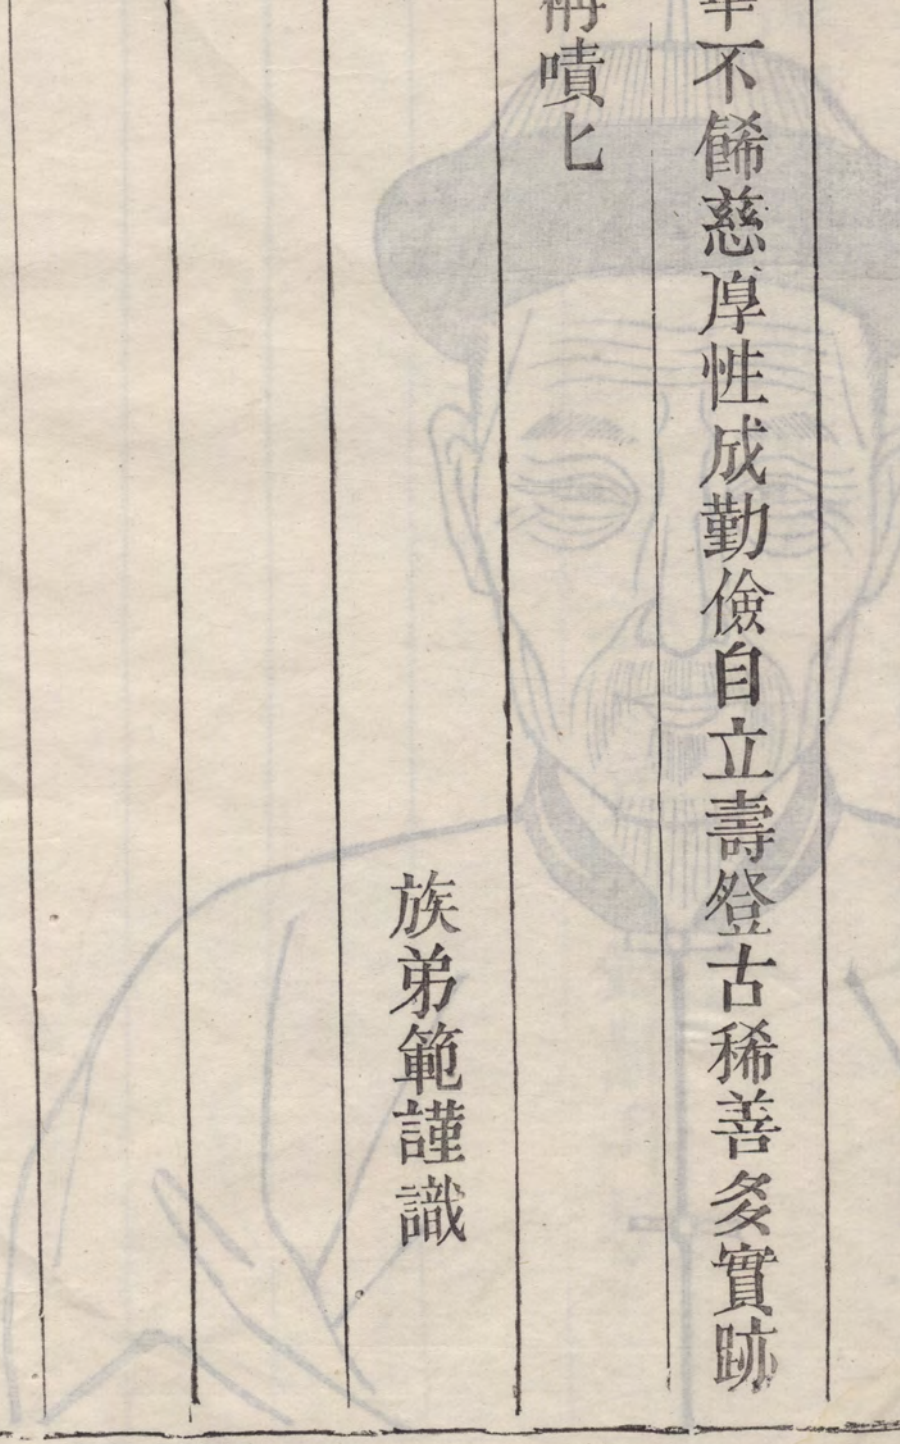 華不餙慈厚性成勤儉自立壽登古稀善多實跡
稱嘖匕
族弟範謹識